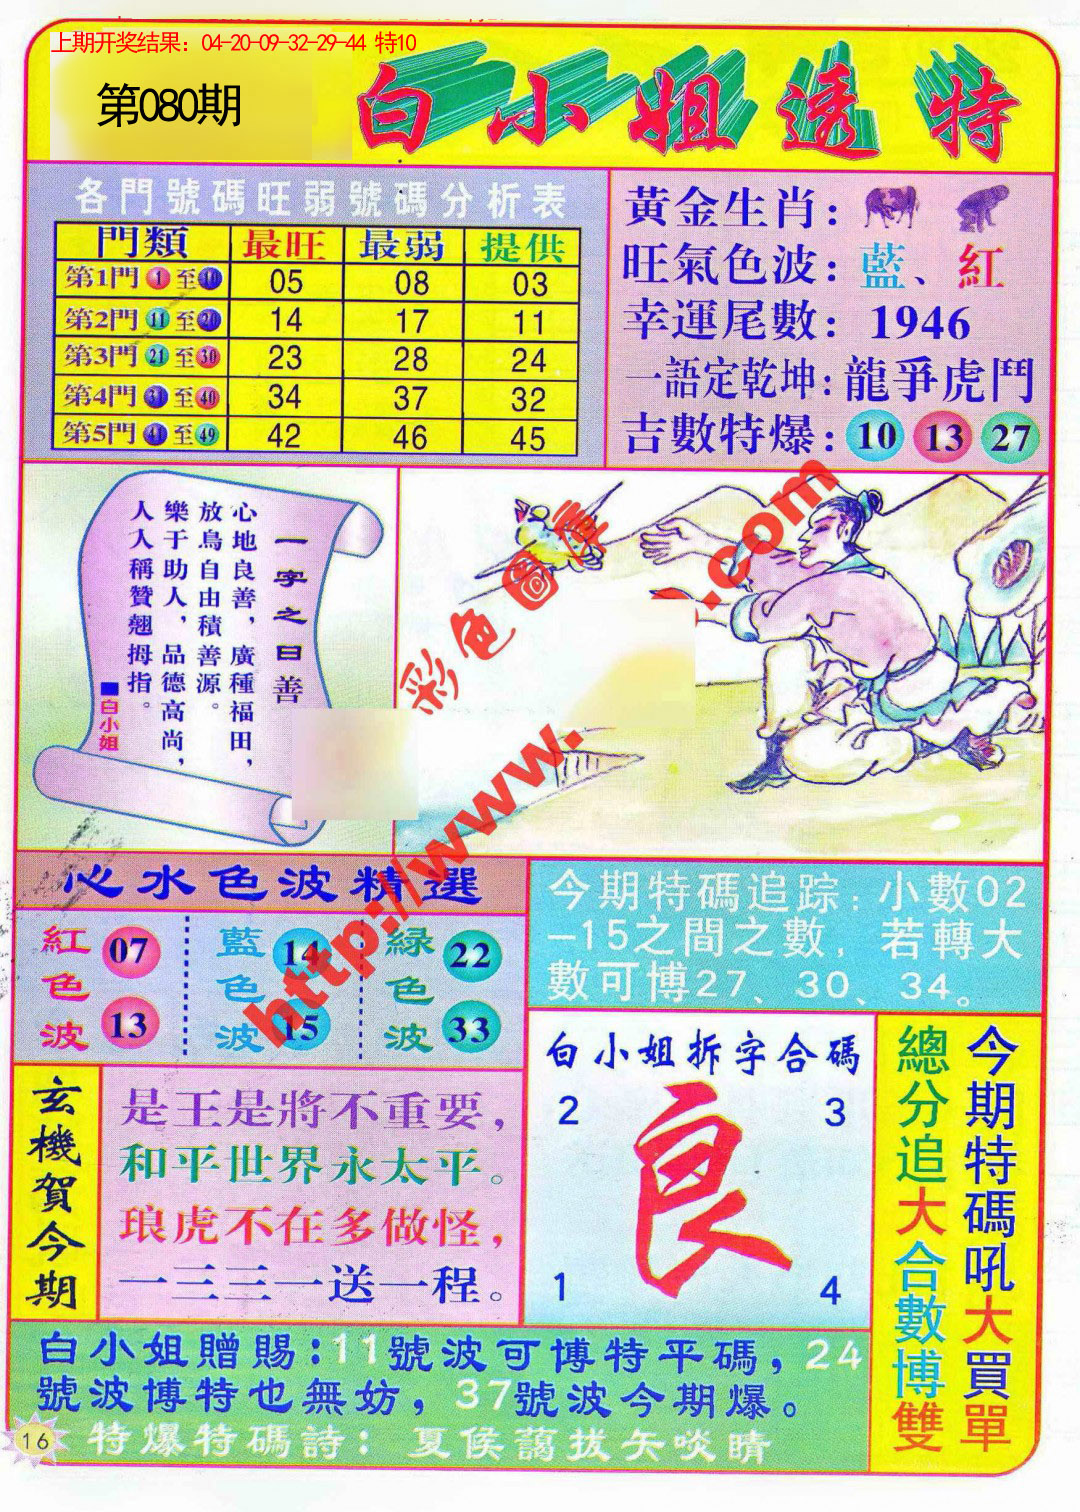 上期开奖结果：04-20-09-32-29-44 特10
第080期
白小姐透特
各門號碼旺弱號碼分析表
門類 最旺 最弱 提供
第1門 1 至 10 05 08 03
第2門 11 至 20 14 17 11
第3門 21 至 30 23 28 24
第4門 31 至 40 34 37 32
第5門 41 至 49 42 46 45
黃金生肖：
旺氣色波：藍、紅
幸運尾數：1946
一語定乾坤：龍爭虎鬥
吉數特爆：10 13 27
一字之曰善
心地良善，廣種福田，
放鳥自由積善源。
樂于助人，品德高尚，
人人稱贊翹拇指。
■白小姐
彩色圖庫
http://www.
.com
心水色波精選
紅色波 07 13
藍色波 14 15
緑色波 22 33
今期特碼追踪：小數02
—15之間之數，若轉大
數可博27、30、34。
玄機賀今期
是王是將不重要，
和平世界永太平。
琅虎不在多做怪，
一三三一送一程。
白小姐拆字合碼
2 3
良
1 4
今期特碼吼大買單
總分追大合數博雙
白小姐贈賜：11號波可博特平碼，24
號波博特也無妨，37號波今期爆。
特爆特碼詩：夏侯藹拔矢啖睛
16